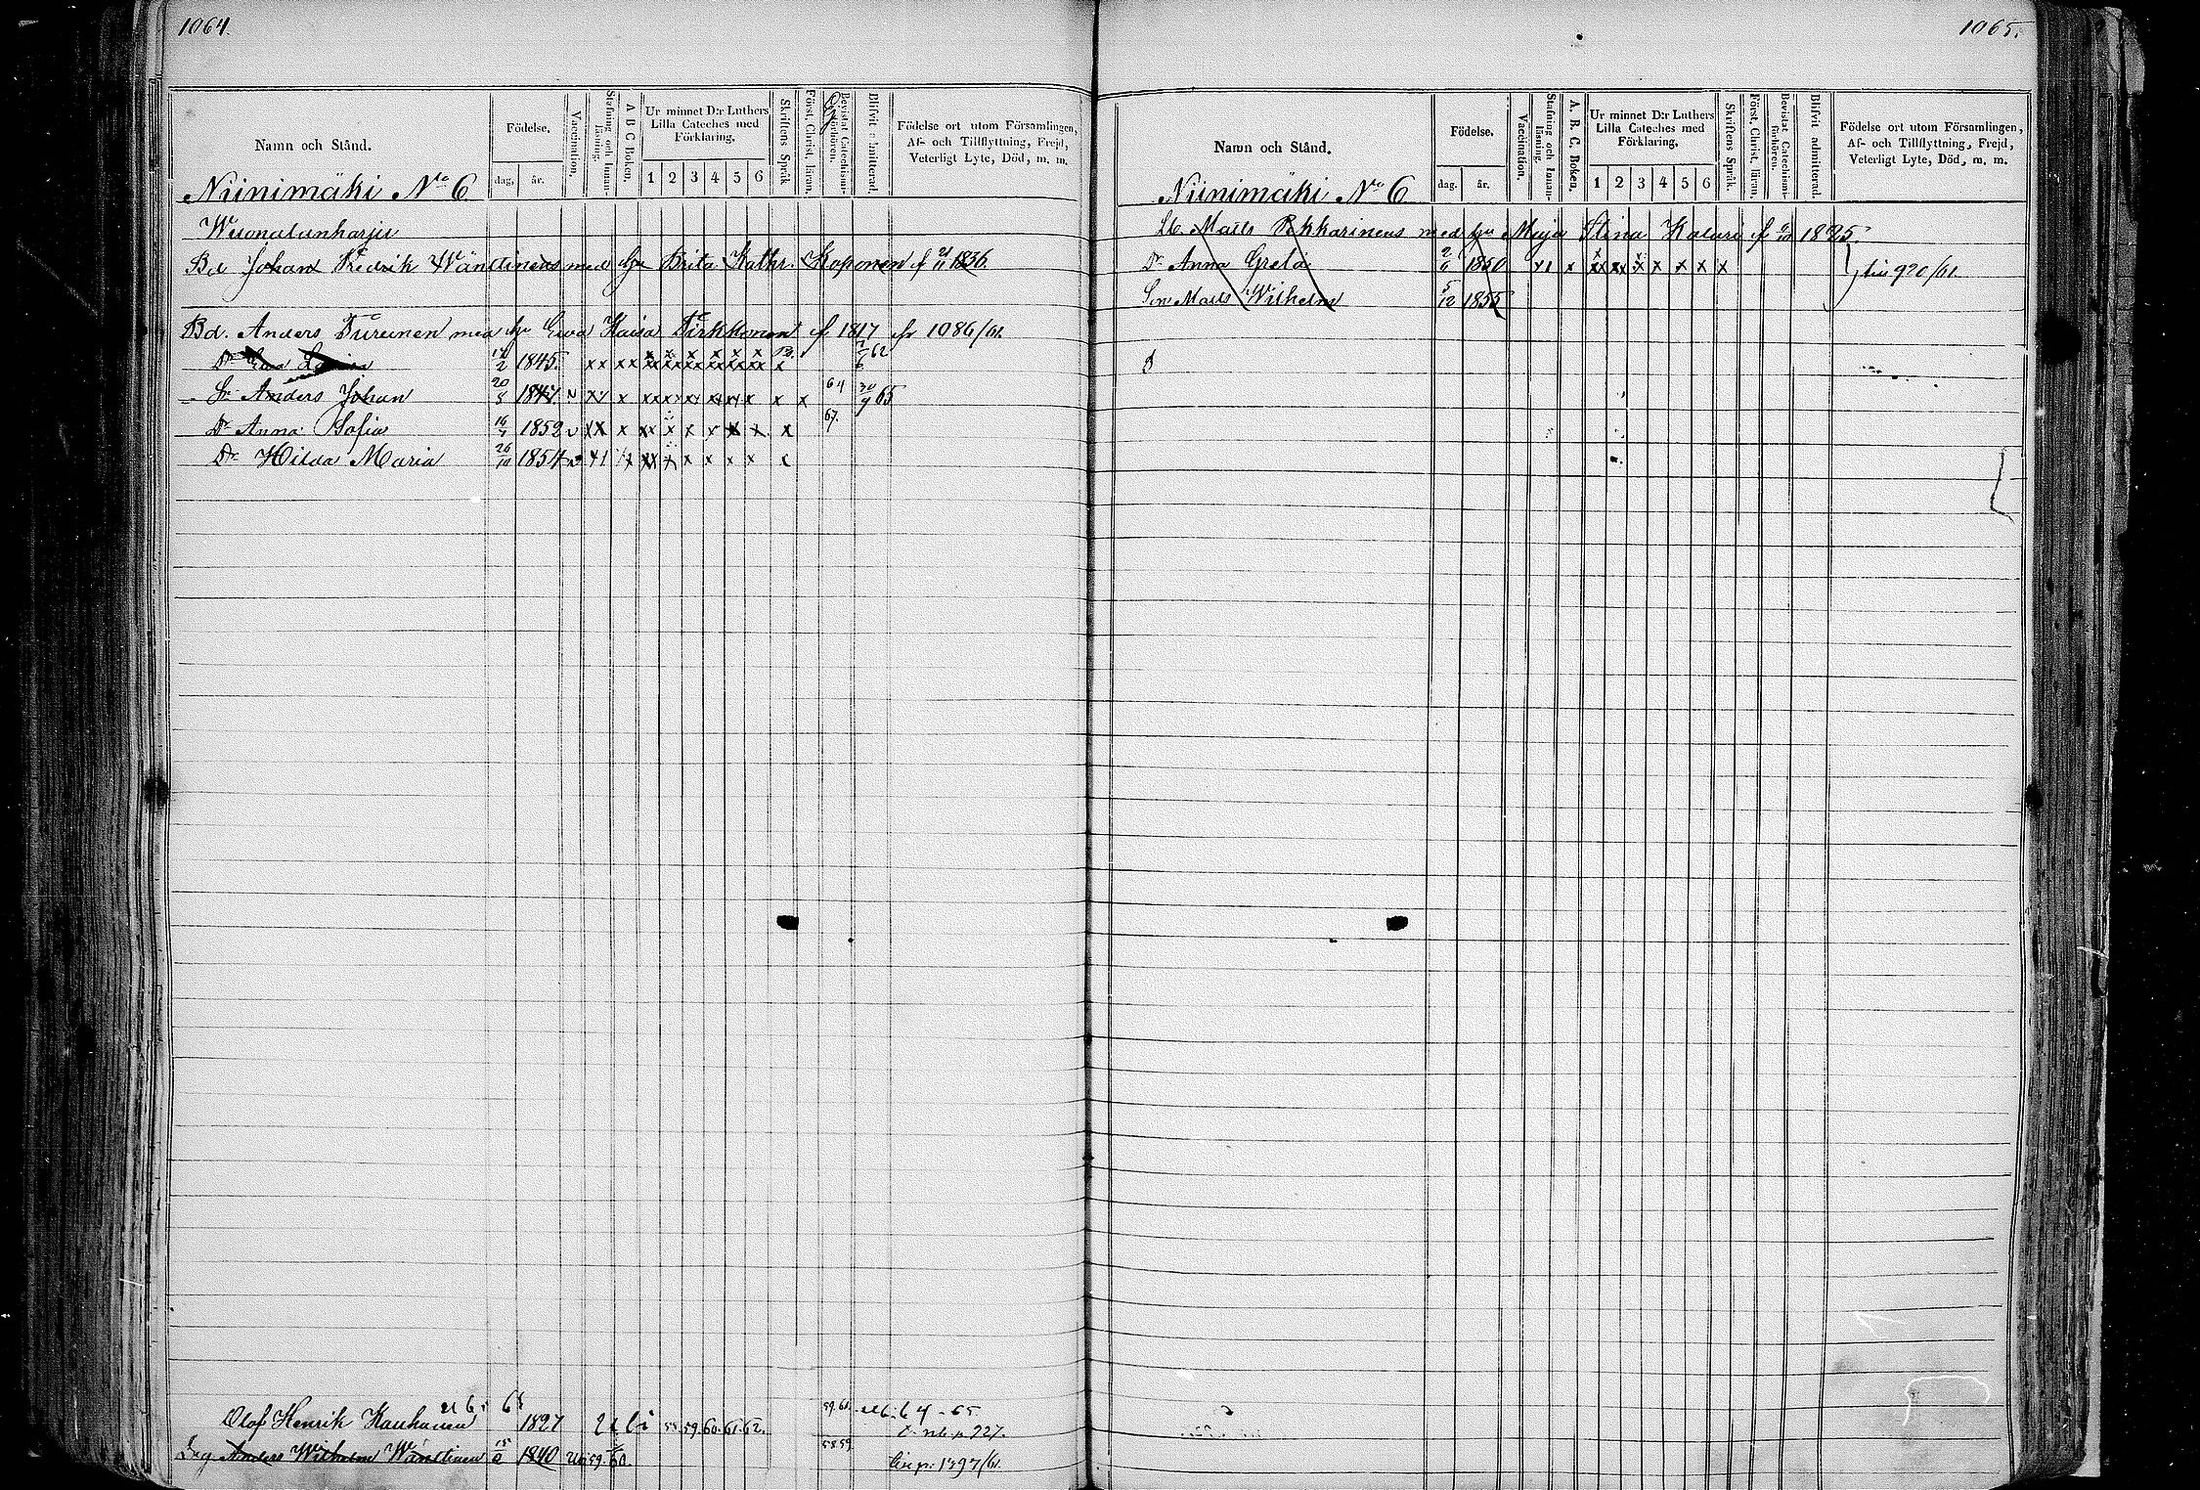 1064.
Namn och Stånd.
Födelse.
dag, år.
Vaccination.
Stafning och Innanläsning.
A B C Boken.
Ur minnet D:r Luthers Lilla Cateches med Förklaring.
1 2 3 4 5 6
Skriftens Språk
Först. Christ. läran.
Bevistat Catechismiförhören.
Blifvit admitterad.
Födelse ort utom Församlingen,
Af- och Tillflyttning, Frejd,
Veterligt Lyte, Död, m. m.
Niinimäki No 6
Bd Johan Fredrik Wänttinens med hu Brita Kathr. Koponen f 1836.
Bd. Anders Turunen med hu Ewa Kaisa Tirkkonen f 1817 fr 1086/61.
Dr Ewa 14/2 1845. 62
Sn Anders Johan 20/8 1847 64 30/9 65
Dr Anna Sofia 1852 67.
Dr Hilda Maria 26/10 1854
Olof Henrik 1827 59. 60. 61. 62. 64-65. 227.
Anders Wilhelm Wänttinen 1840 59. 60. 58 59 1397/61
1065.
Namn och Stånd.
Födelse.
dag. år.
Vaccination.
Stafning och Innanläsning.
A. B. C. Boken.
Ur minnet D:r Luthers Lilla Cateches med Förklaring.
1 2 3 4 5 6
Skriftens Språk.
Först. Christ. läran.
Bevistat Catechismiförhören.
Blifvit admitterad.
Födelse ort utom Församlingen,
Af- och Tillflyttning, Frejd,
Veterligt Lyte, Död, m. m.
Niinimäki No 6
Mats Pekkarinens med hu Maja Stina f 1825.
Dr Anna Greta 2/6 1850 920/61.
Son Mats Wilhelm 5/12 1855
D